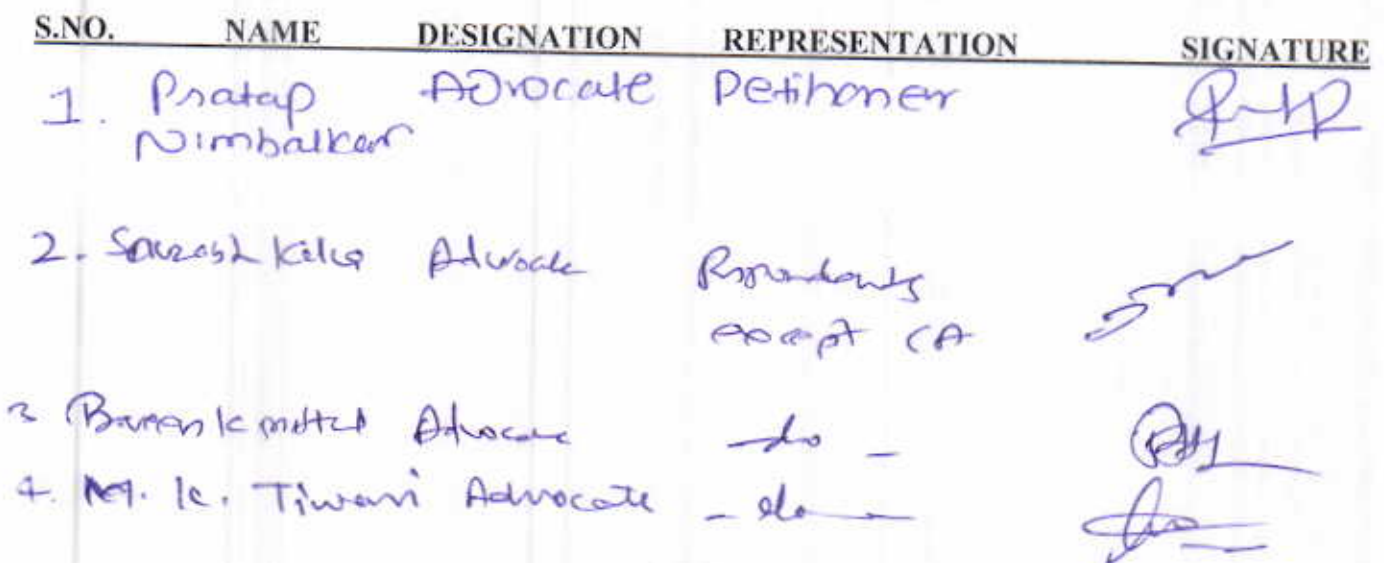 S.NO. NAME DESIGNATION REPRESENTATION SIGNATURE
1. Pratap Advocate Petitioner
Nimbalkar
2. Advocate Respondents
except CA
3 Advocate - do -
4. M. K. Tiwari Advocate - do -